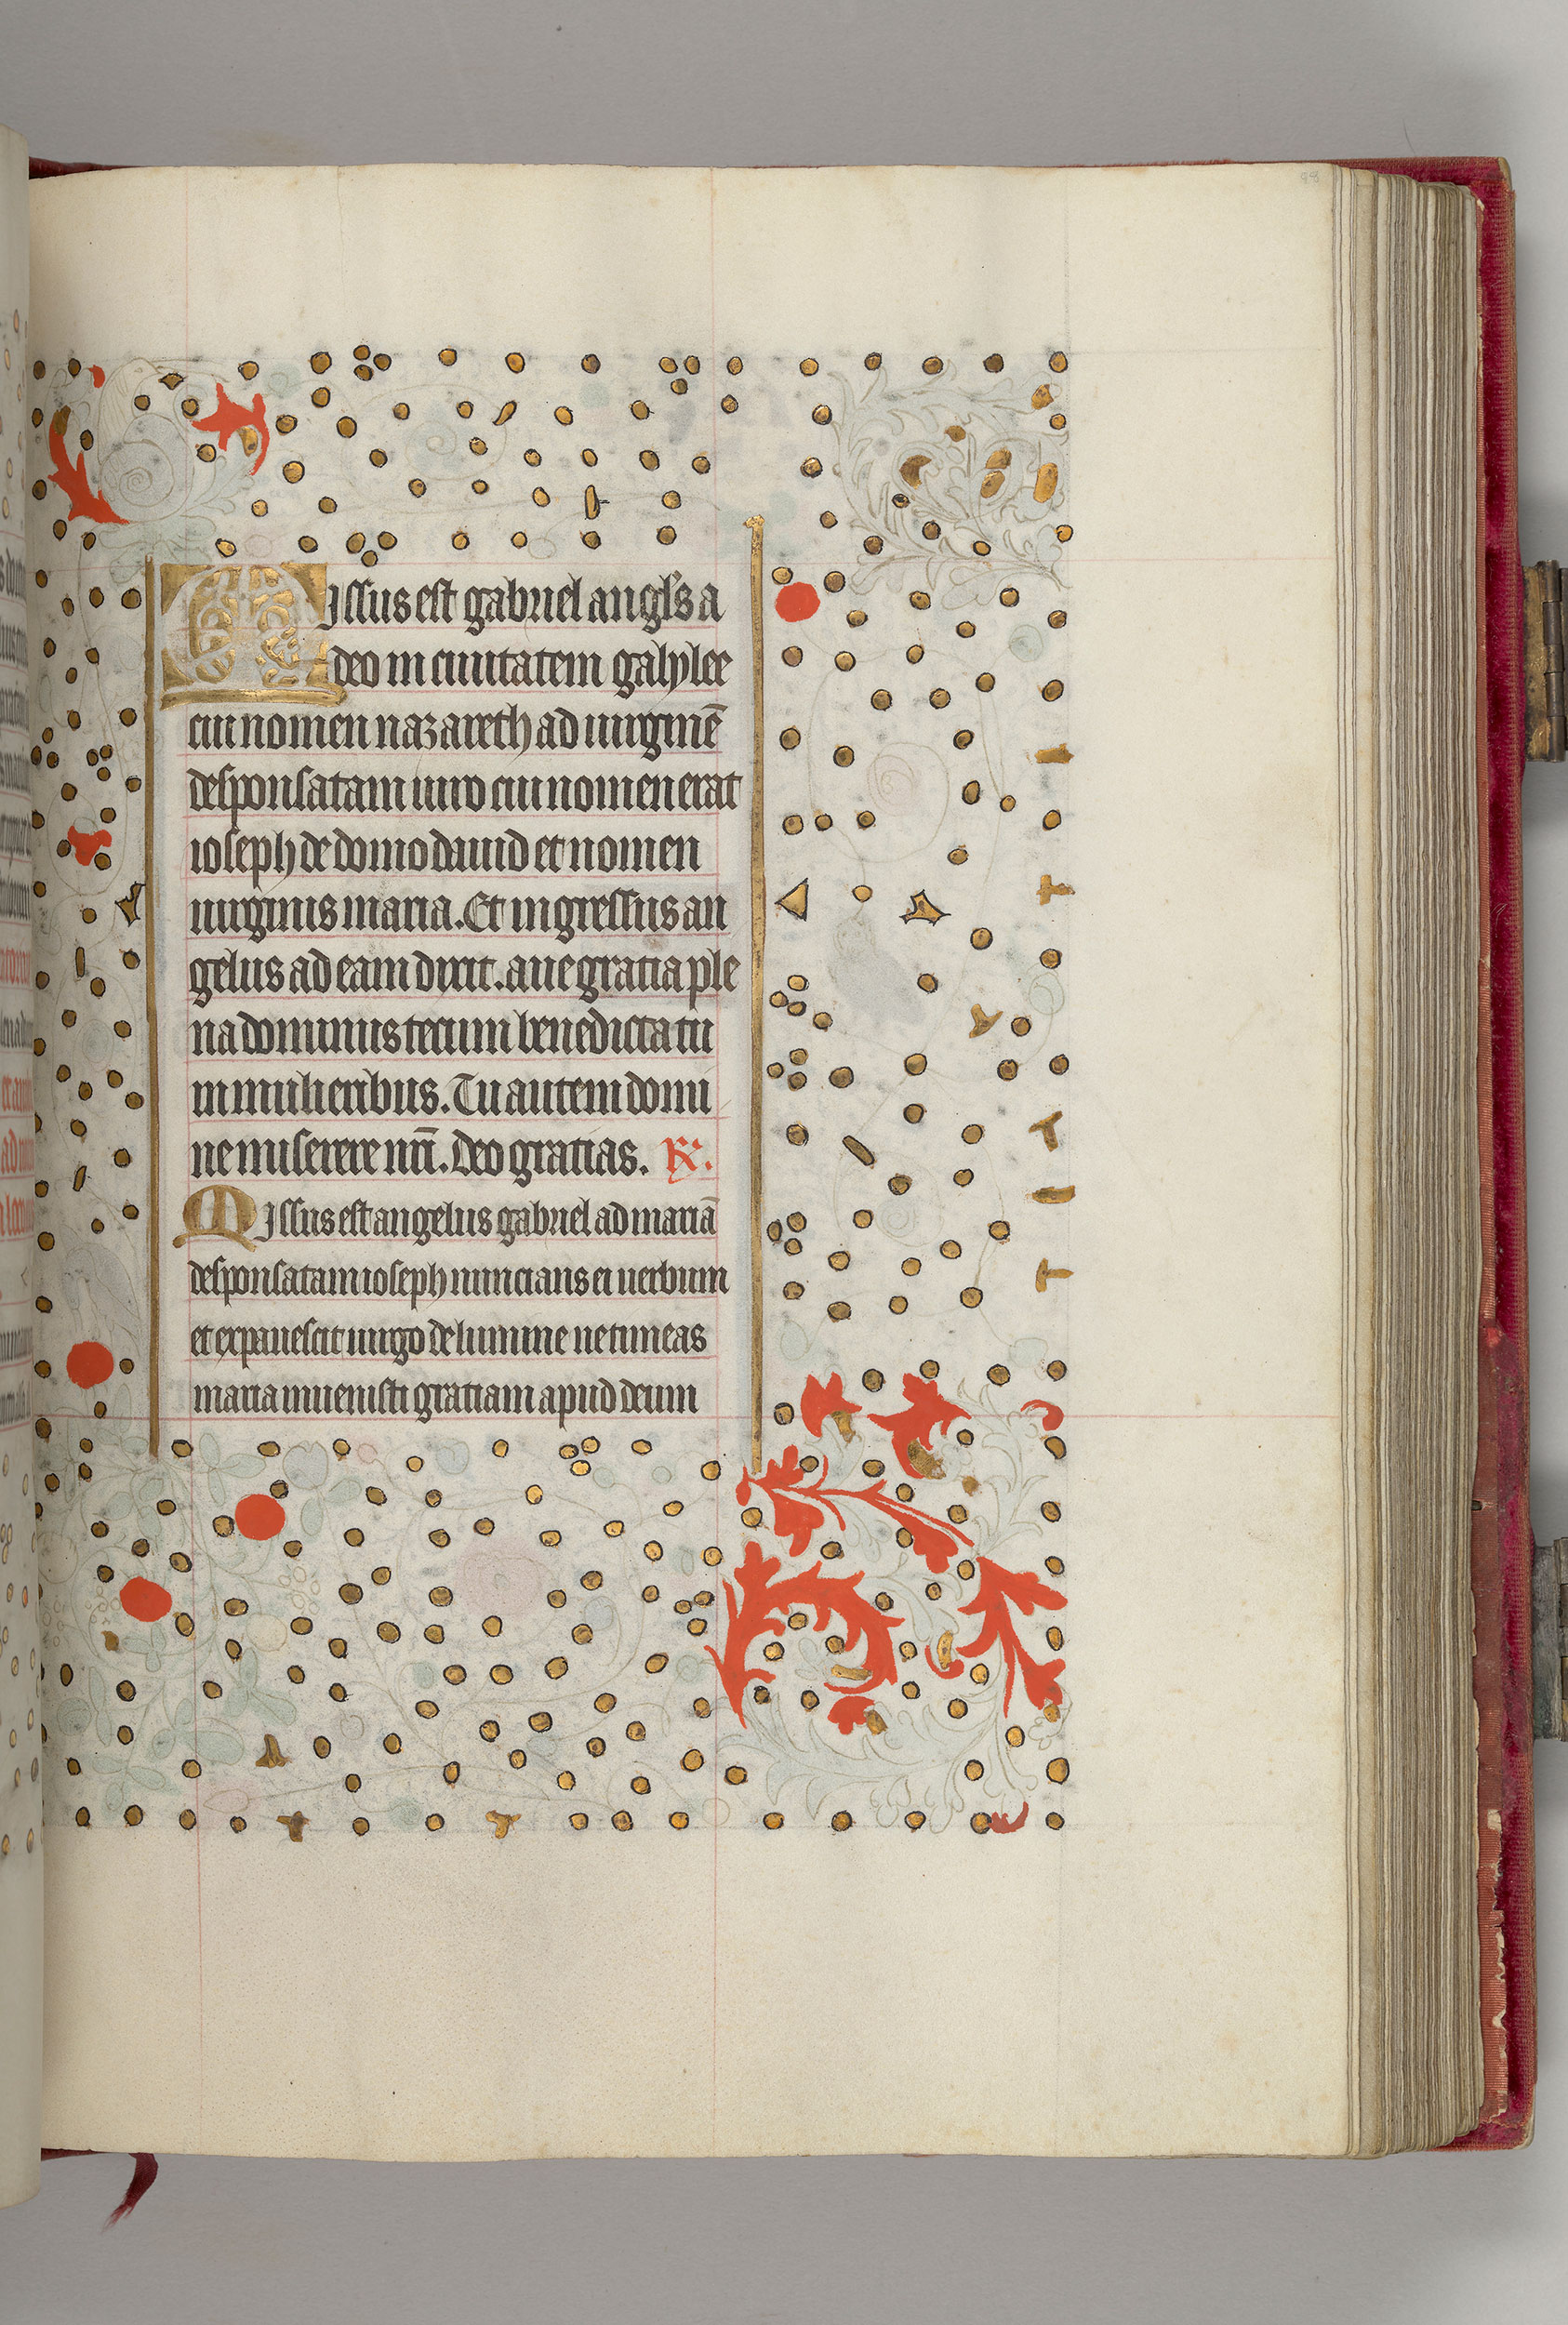 Missus est gabriel angl's a
deo in ciuitatem galylee
cui nomen nazareth ad uirginē
desponsatam uiro cui nomen erat
ioseph de domo dauid et nomen
uirginis maria. Et ingressus an
gelus ad eam dixit. aue gratia ple
na dominus tecum benedicta tu
in mulieribus. Tu autem domi
ne miserere nrī. Deo gratias. ℟.
Missus est angelus gabriel ad mariā
desponsatam ioseph nuncians ei uerbum
et expauescit uirgo de lumine ne timeas
maria inuenisti gratiam apud deum